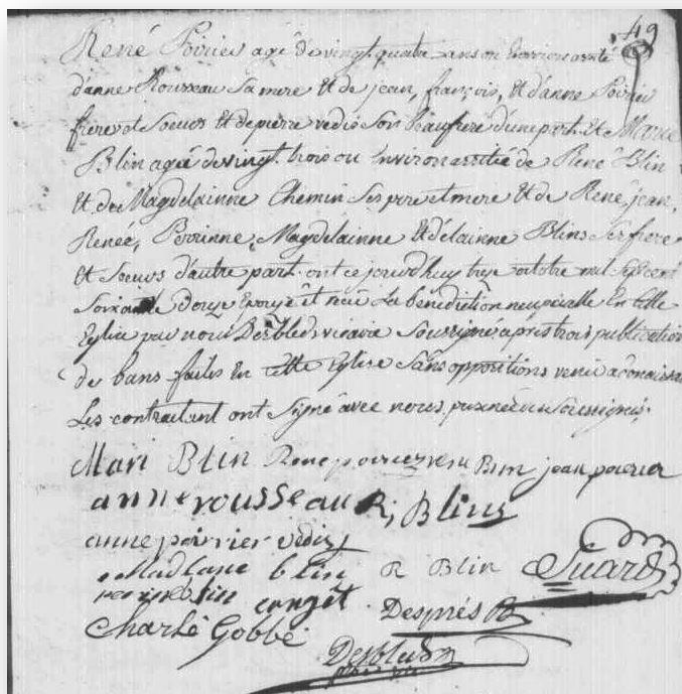 49
René Poirier agé de vingt quatre ans ou environ assisté
d'anne Rousseau Sa mere Et de jean, françois, Et d'anne Poirier
frere et Soeurs Et de pierre vedis Son beaufrere d'une part. Et Marie
Blin agée de vingt trois ou Environ assistée de René Blin
Et de Magdelainne Chemin Ses pere et mere Et de René, jean,
Renée, Perrinne, Magdelainne Et d'élainne Blins Ses frere
Et Soeurs d'autre part. ont ce jourd'huy treze octobre mil Sept cent
Soixante Douze Epouzé Et reçu La bénédiction nuptialle En cette
Eglise par nous Desbleds vicaire Soussigné après trois publication
de bans faites En cette Eglise Sans oppositions venue a connaissan
Les contractant ont Signé avec nous,
Mari Blin René poirier rene Blin jean poirier
anne rousseau R, Blins
anne poirier vedis
Madlane blin R Blin Suard
blin Després
Charle Gobbé
Desbleds